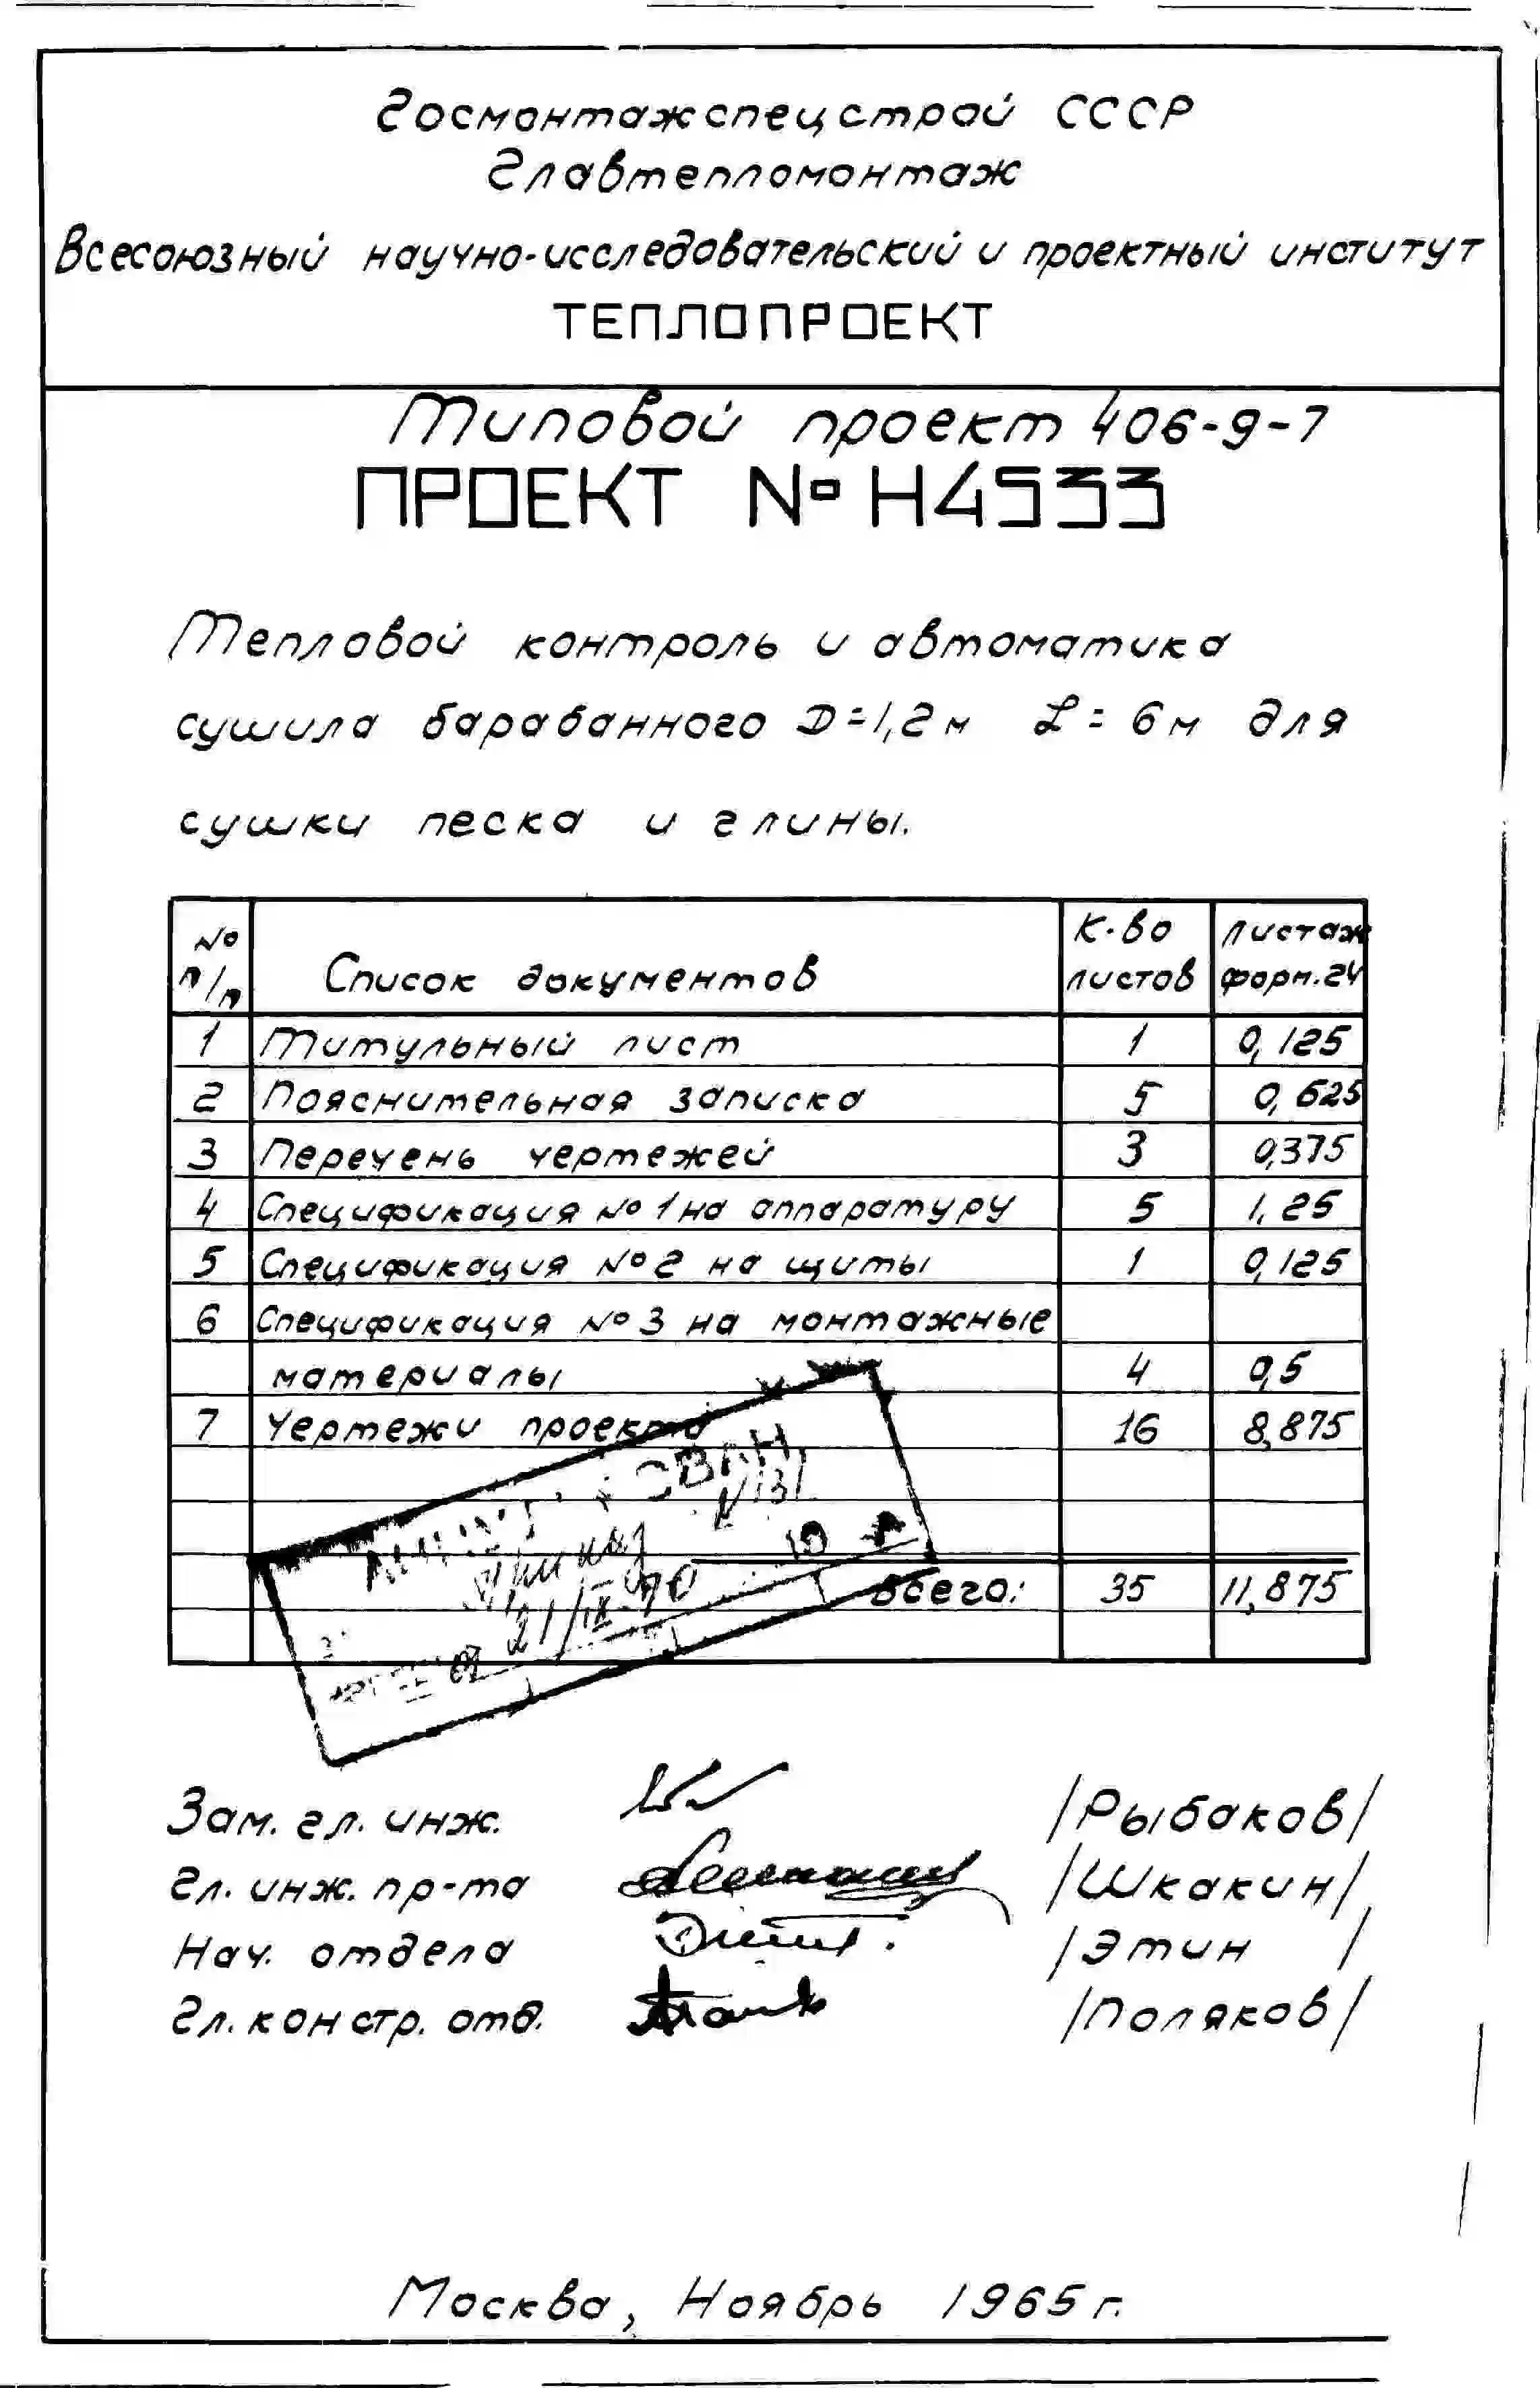 Госмонтажспецстрой СССР
Главтепломонтаж
Всесоюзный научно-исследовательский и проектный институт
ТЕПЛОПРОЕКТ
Типовой проект 406-9-7
ПРОЕКТ № Н4533
Тепловой контроль и автоматика
сушила барабанного D=1,2м L=6м для
сушки песка и глины.
№ п/п Список документов К-во листов Листаж форм.24
1 Титульный лист 1 0,125
2 Пояснительная записка 5 0,625
3 Перечень чертежей 3 0,375
4 Спецификация №1 на аппаратуру 5 1,25
5 Спецификация №2 на щиты 1 0,125
6 Спецификация №3 на монтажные
материалы 4 0,5
7 Чертежи проекта 16 8,875
Всего: 35 11,875
Зам. гл. инж. /Рыбаков/
Гл. инж. пр-та /Шкакин/
Нач. отдела /Этин/
Гл. констр. отд. /Поляков/
Москва, Ноябрь 1965г.